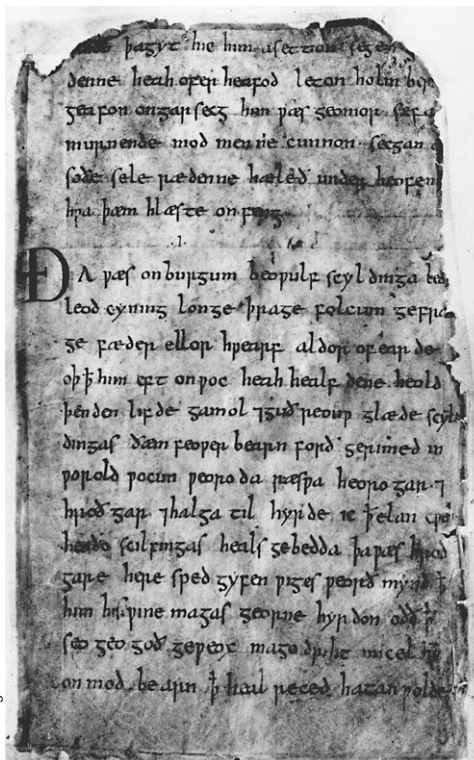 þagyt hie him asetton segen
denne heah ofer heafod leton holm
geafon ongarsecg him ƿæs geomor sefa
murnende mod men ne cunnon · secgan
soðe sele rædenne hæleð under heofen
hƿa þæm hlæste onfeng
·I·
ÐA ƿæs onburgum beoƿulf scyldinga
leod cyning longe þrage folcum gefræ
ge fæder ellor hƿearf aldor of earde
oþ ꝥ him eft onƿoc heah healfdene heold
þenden lifde gamol ⁊guðreouƿ glæde scyl
dingas ðæm feoƿer bearn forð gerimed in
ƿorold ƿocun ƿeoroda ræsƿa heorogar · ⁊
hroðgar ⁊halga til hyrde ic ꝥ elan
heaðo scilfingas heals gebedda þaƿæs hroð
gare here sped gyfen ƿiges ƿeorð mynd ꝥ
him his ƿine magas georne hyrdon oðð ꝥ
seo geogoð geƿeox mago driht micel
on mod bearn ꝥ heal reced hatan ƿolde